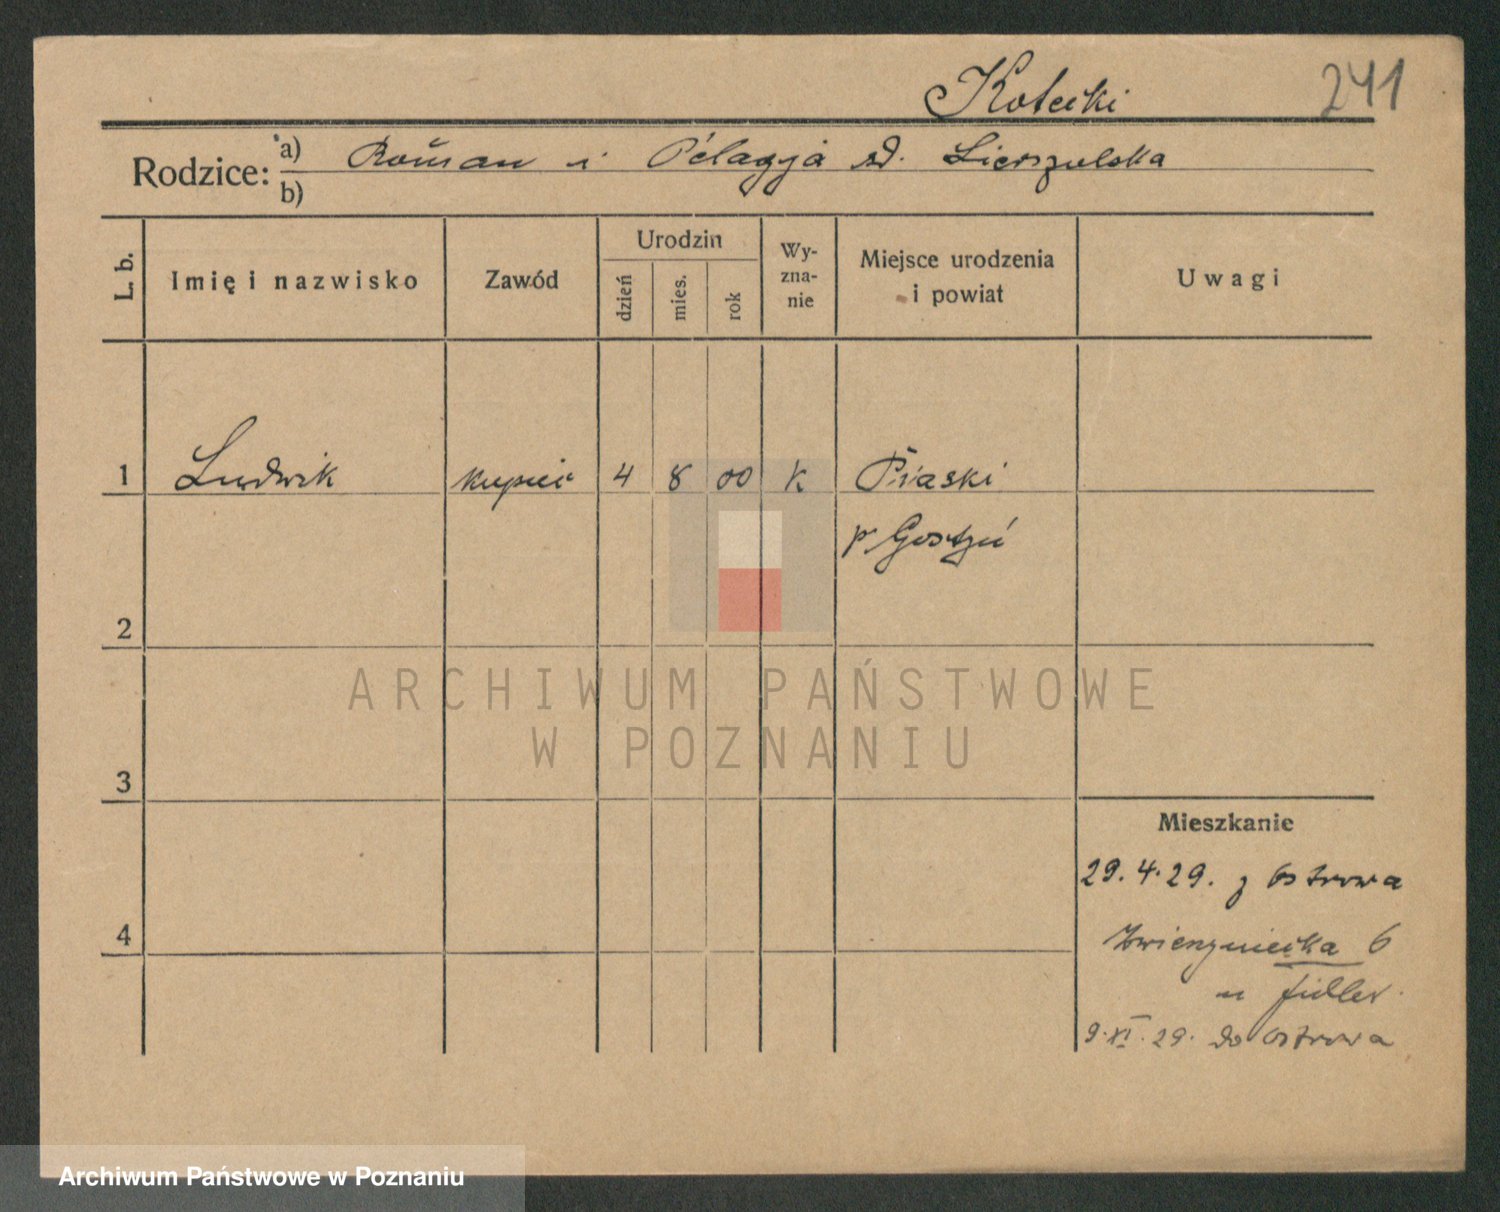 Kotecki 241
Rodzice: a) Roman i Pelagja zd.
b)
L. b. Imię i nazwisko Zawód Urodzin dzień mies. rok Wy-zna-nie Miejsce urodzenia i powiat Uwagi
1 Ludwik kupiec 4 8 00 k Piaski
p Gostyń
2
ARCHIWUM PAŃSTWOWE
W POZNANIU
3
Mieszkanie
29.4.29. z Ostrowa
4
Zwierzyniecka 6
u Fidler
9.XI.29. do Ostrowa
Archiwum Państwowe w Poznaniu